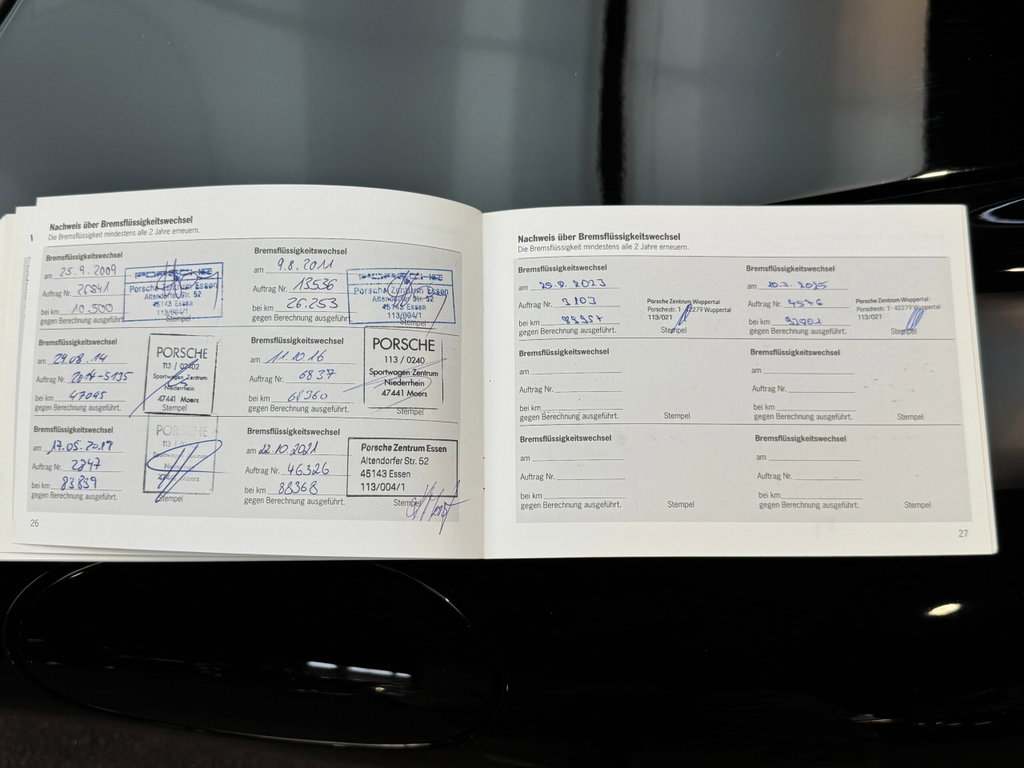 Nachweis über Bremsflüssigkeitswechsel
Die Bremsflüssigkeit mindestens alle 2 Jahre erneuern.
Bremsflüssigkeitswechsel
am 25.9.2009
Auftrag Nr. 26841
bei km 10.500
gegen Berechnung ausgeführt.
PORSCHE
Porsche Zentrum Essen
Altendorfer Str. 52
45143 Essen
113/004/1
Stempel
Bremsflüssigkeitswechsel
am 9.8.2011
Auftrag Nr. 13536
bei km 26.253
gegen Berechnung ausgeführt.
PORSCHE
Porsche Zentrum Essen
Altendorfer Str. 52
45143 Essen
113/004/1
Stempel
Bremsflüssigkeitswechsel
am 29.08.14
Auftrag Nr. 2014-5135
bei km 47095
gegen Berechnung ausgeführt.
PORSCHE
Sportwagen Zentrum
Niederrhein
47441 Moers
Stempel
Bremsflüssigkeitswechsel
am 11.10.16
Auftrag Nr. 6837
bei km 68360
gegen Berechnung ausgeführt.
PORSCHE
113 / 0240
Sportwagen Zentrum
Niederrhein
47441 Moers
Stempel
Bremsflüssigkeitswechsel
am 17.05.2019
Auftrag Nr. 2347
bei km 83859
gegen Berechnung ausgeführt.
PORSCHE
Moers
Stempel
Bremsflüssigkeitswechsel
am 22.10.2021
Auftrag Nr. 46326
bei km 88368
gegen Berechnung ausgeführt.
Porsche Zentrum Essen
Altendorfer Str. 52
45143 Essen
113/004/1
Stempel
26
Nachweis über Bremsflüssigkeitswechsel
Die Bremsflüssigkeit mindestens alle 2 Jahre erneuern.
Bremsflüssigkeitswechsel
am 2023
Auftrag Nr. 2103
bei km
gegen Berechnung ausgeführt.
Porsche Zentrum Wuppertal
Porschestr. 1 42279 Wuppertal
113/021
Stempel
Bremsflüssigkeitswechsel
am 2025
Auftrag Nr. 4546
bei km
gegen Berechnung ausgeführt.
Porsche Zentrum Wuppertal
Porschestr. 1 42279 Wuppertal
113/021
Stempel
Bremsflüssigkeitswechsel
am
Auftrag Nr.
bei km
gegen Berechnung ausgeführt.
Stempel
Bremsflüssigkeitswechsel
am
Auftrag Nr.
bei km
gegen Berechnung ausgeführt.
Stempel
Bremsflüssigkeitswechsel
am
Auftrag Nr.
bei km
gegen Berechnung ausgeführt.
Stempel
Bremsflüssigkeitswechsel
am
Auftrag Nr.
bei km
gegen Berechnung ausgeführt.
Stempel
27